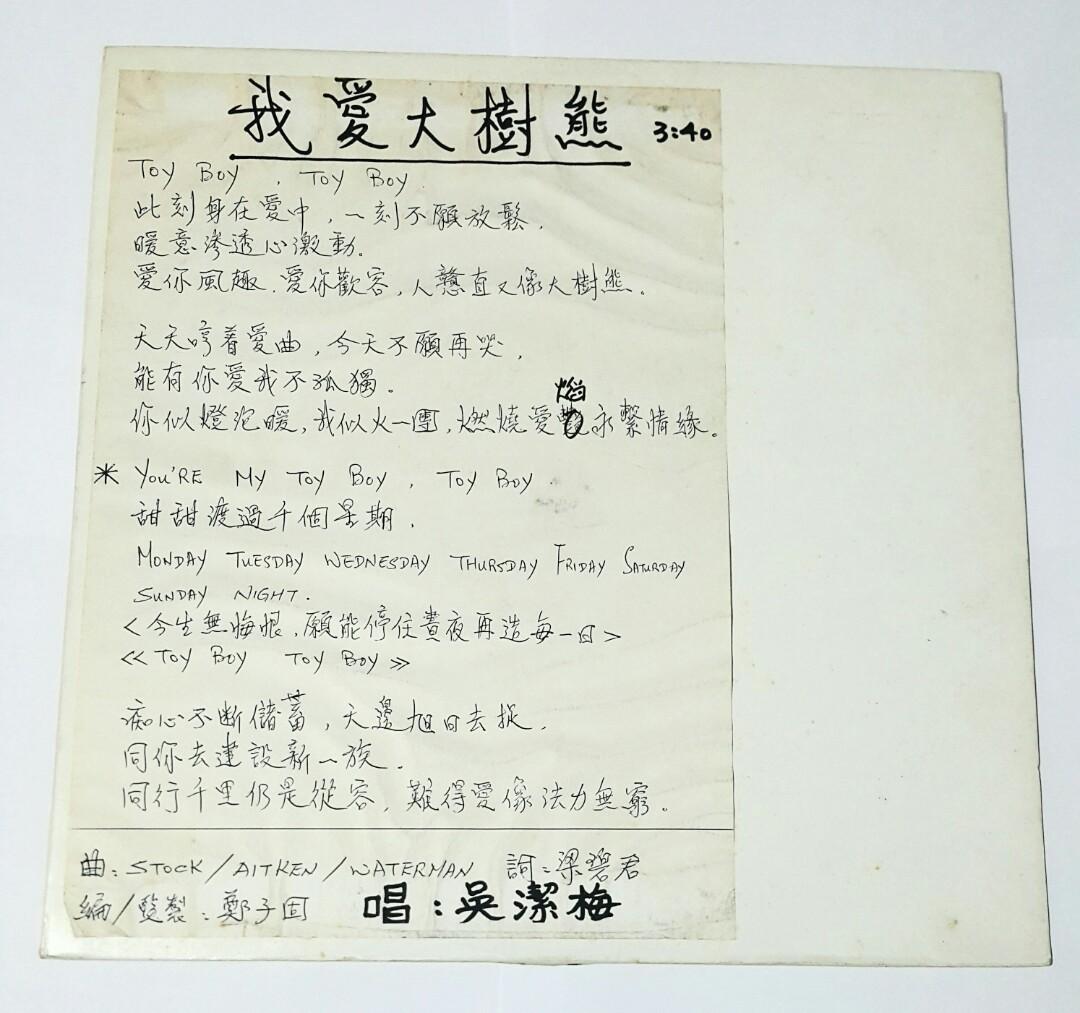 我愛大樹熊 3:40
TOY BOY , TOY BOY
此刻身在愛中，一刻不願放鬆，
暖意滲透心激動。
愛你風趣，愛你歡容，人戇直又像大樹熊。
天天哼着愛曲，今天不願再哭，
能有你愛我不孤獨。
你似燈泡暖，我似火一團，燃燒愛焰永繫情緣。
* YOU'RE MY TOY BOY , TOY BOY
甜甜渡過千個星期，
MONDAY TUESDAY WEDNESDAY THURSDAY FRIDAY SATURDAY
SUNDAY NIGHT.
<今生無悔恨，願能停住晝夜再造每一日>
<<TOY BOY TOY BOY>>
痴心不斷儲蓄，天邊旭日去捉，
同你去建設新一族。
同行千里仍是從容，難得愛像法力無窮。
曲：STOCK/AITKEN/WATERMAN 詞：梁碧君
編/監製：鄭子固 唱：吳潔梅